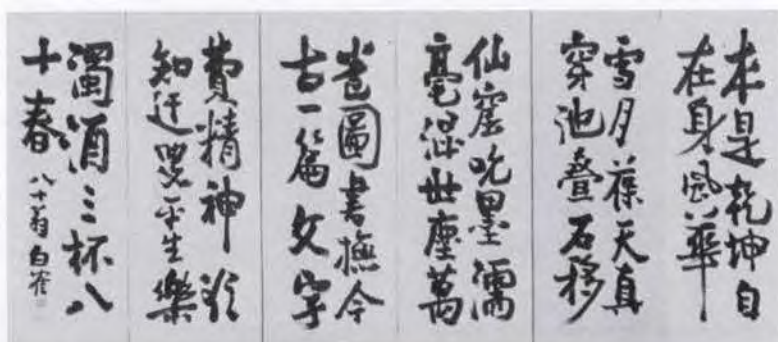 本是乾坤自
在身風華
雪月葆天真
穿池叠石移
仙窟吮墨濡
毫混世塵萬
卷圖書撫今
古一篇文字
費精神欲
知迂叟平生樂
濁酒三杯八
十春
八十翁白雀